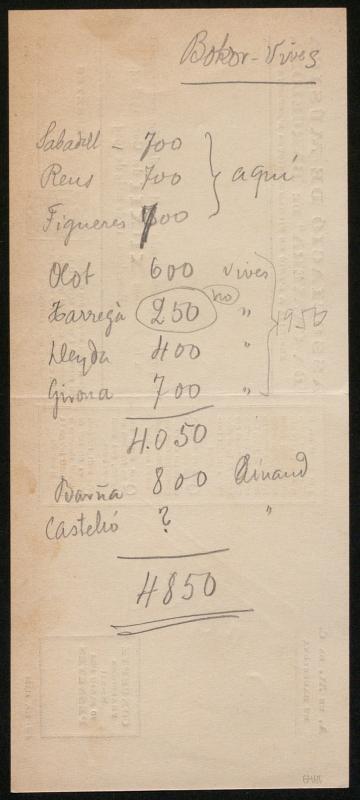 Bokor - Vives
Sabadell - 700
Reus 700 } aquí
Figueres 700
Olot 600 Vives
Tarrega 250 no "
Lleyda 400 " } 1950
Girona 700 "
4.050
Barña 800
Castelló ? "
4850